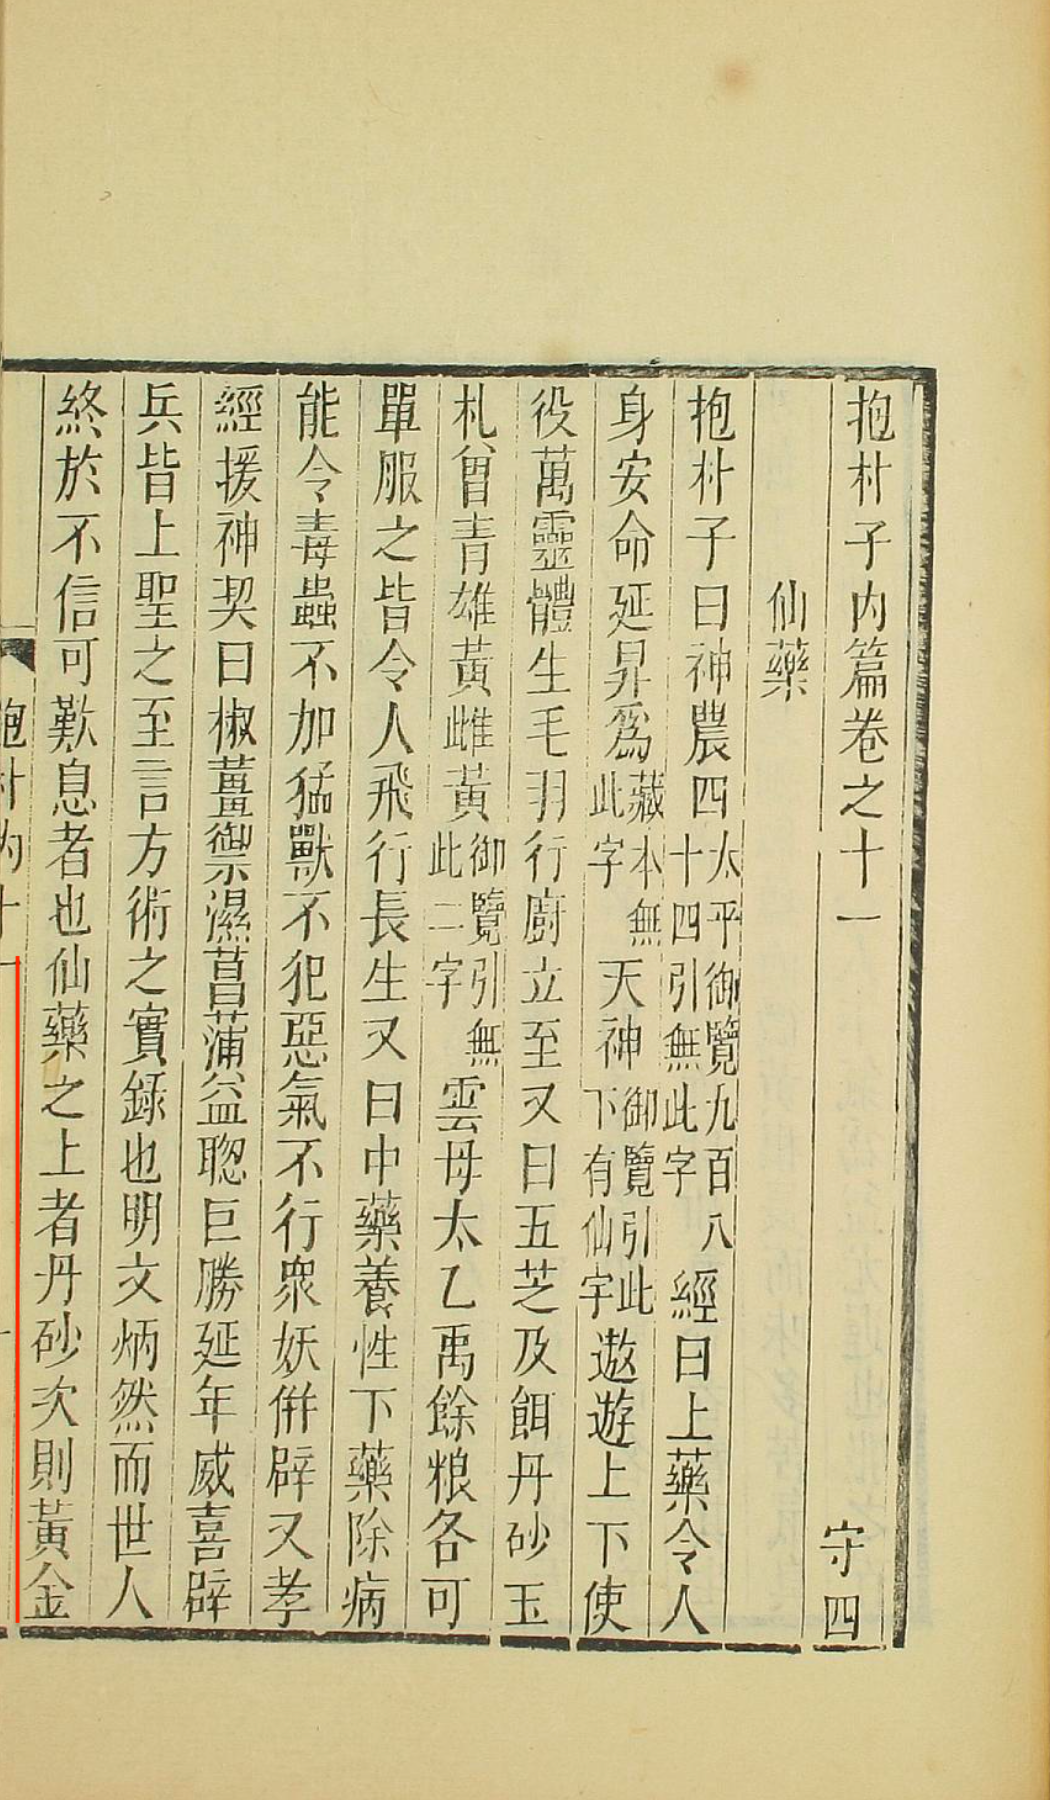 抱朴子内篇卷之十一
守四
仙藥
抱朴子曰神農四太平御覽九百八十四引無此字經曰上藥令人
身安命延昇爲藏本無此字天神御覽引此下有仙字遨遊上下使
役萬靈體生毛羽行廚立至又曰五芝及餌丹砂玉
札曾青雄黃雌黃御覽引無此二字雲母太乙禹餘粮各可
單服之皆令人飛行長生又曰中藥養性下藥除病
能令毒蟲不加猛獸不犯惡氣不行衆妖併辟又孝
經援神契曰椒薑禦濕菖蒲益聰巨勝延年威喜辟
兵皆上聖之至言方術之實錄也明文炳然而世人
終於不信可歎息者也仙藥之上者丹砂次則黃金